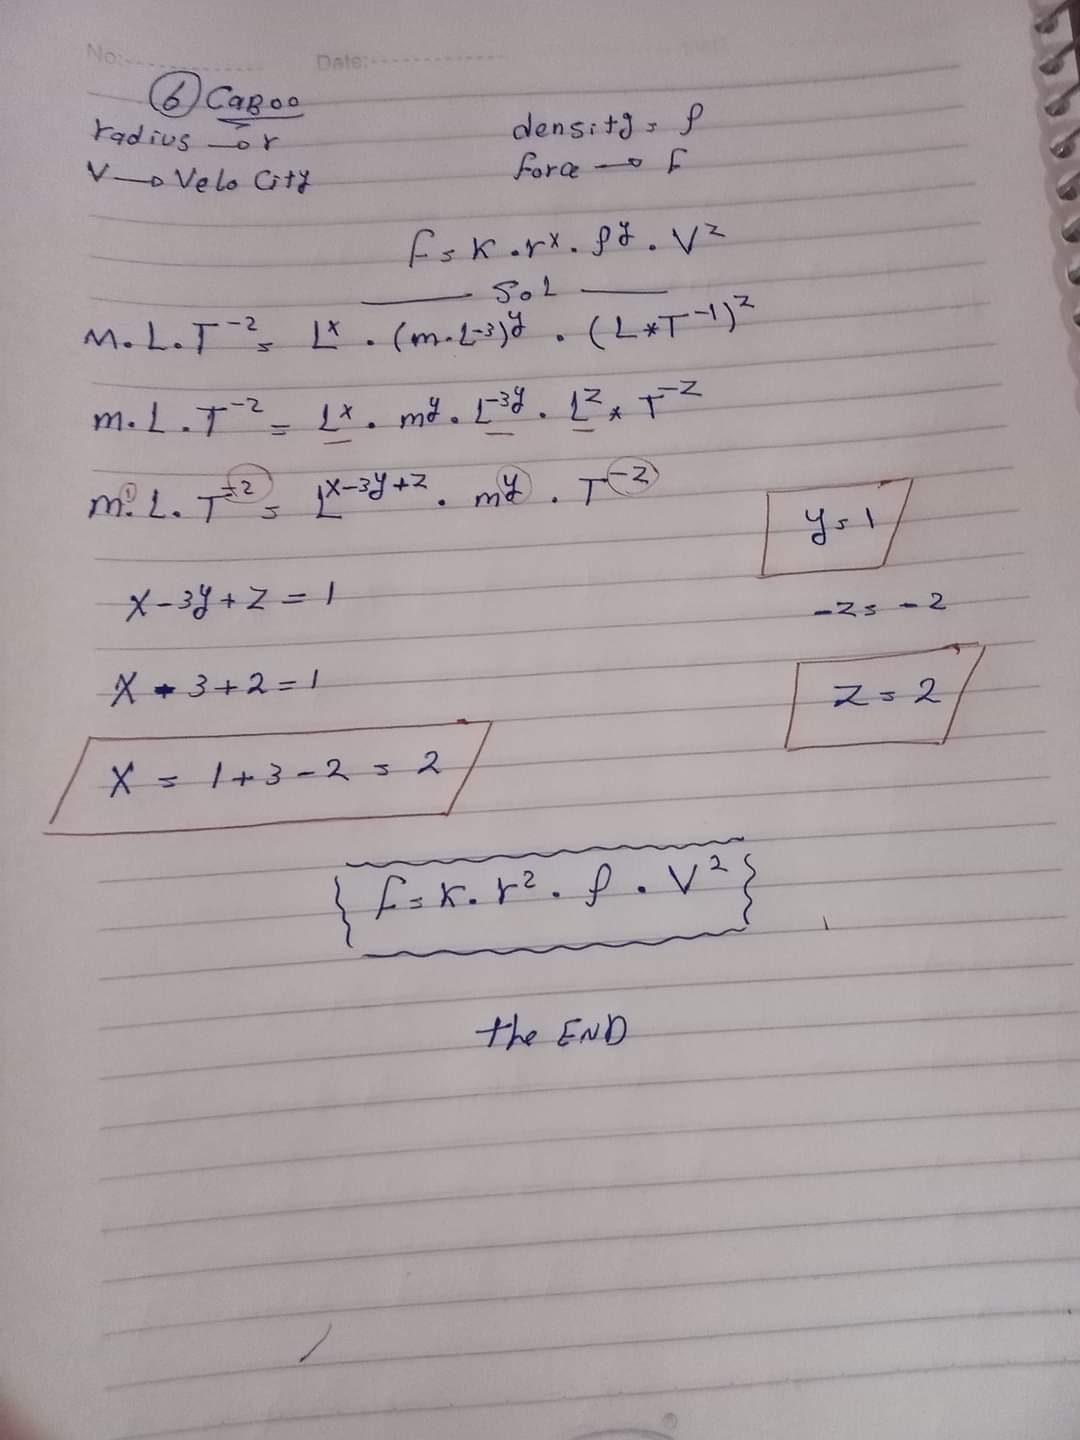 No: Date:
⑥ CaBoo
radius → r density = ρ
V → Velocity force → F
F = K . r^x . ρ^y . V^z
Sol
M . L . T^-2 = L^x . (m . L^-3)^y . (L * T^-1)^z
m . L . T^-2 = L^x . m^y . L^-3y . L^z * T^-z
m^1 . L . T^-2 = L^x-3y+z . m^y . T^-z
y = 1
x - 3y + z = 1
-z = -2
x - 3 + 2 = 1
z = 2
x = 1 + 3 - 2 = 2
{ F = K . r^2 . ρ . V^2 }
the END